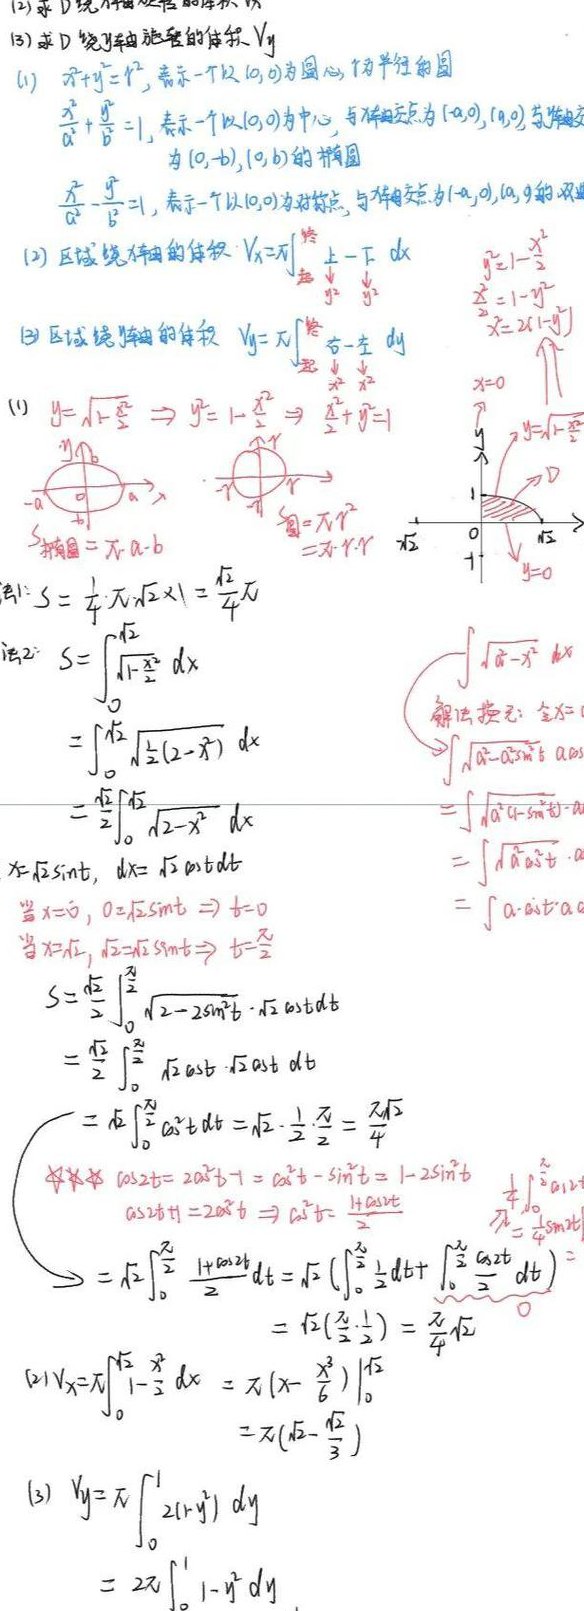 (2) 求D绕x轴旋转的体积Vx
(3) 求D绕y轴旋转的体积Vy
(1) x²+y²=r², 表示一个以(0,0)为圆心, r为半径的圆
x²/a² + y²/b² = 1, 表示一个以(0,0)为中心, 与x轴交点为(-a,0),(a,0), 与y轴交
为(0,-b),(0,b)的椭圆
x²/a² - y²/b² = 1, 表示一个以(0,0)为对称点, 与x轴交点为(-a,0),(a,0)的双曲
(2) 区域绕x轴的体积 Vx=π∫起→终 上-下 dx
y² y²
(3) 区域绕y轴的体积 Vy=π∫起→终 右-左 dy
x² x²
y²=1-x²/2
x²/2=1-y²
x²=2(1-y²)
x=0
(1) y=√(1-x²/2) ⇒ y²=1-x²/2 ⇒ x²/2+y²=1
y b -a 0 a x -b
S椭圆=π·a·b
r -r r -r
S圆=π·r²
=π·r·r
y y=√(1-x²/2) D 1 -√2 0 √2 -1 y=0
法1: S=1/4·π·√2×1=√2/4 π
法2: S=∫₀^√2 √(1-x²/2) dx
=∫₀^√2 √(1/2(2-x²)) dx
=√2/2 ∫₀^√2 √(2-x²) dx
x=√2sint, dx=√2costdt
当x=0, 0=√2sint ⇒ t=0
当x=√2, √2=√2sint ⇒ t=π/2
∫√(a²-x²) dx
解法换元: 令x=
∫√(a²-a²sin²t) acos
=∫√(a²(1-sin²t))·a
=∫√(a²cos²t)·a
=∫a·cost·a
S=√2/2 ∫₀^(π/2) √(2-2sin²t)·√2costdt
=√2/2 ∫₀^(π/2) √2cost·√2cost dt
=√2∫₀^(π/2) cos²t dt=√2·1/2·π/2=π√2/4
☆☆☆ cos2t=2cos²t-1=cos²t-sin²t=1-2sin²t
cos2t+1=2cos²t ⇒ cos²t=(1+cos2t)/2
1/4∫₀^(π/2) cos2t
=1/4 sin2t|
=
=√2∫₀^(π/2) (1+cos2t)/2 dt=√2(∫₀^(π/2) 1/2 dt+∫₀^(π/2) cos2t/2 dt)
0
=√2(π/2·1/2)=π/4 √2
(2) Vx=π∫₀^√2 1-x²/2 dx =π(x-x³/6)|₀^√2
=π(√2-√2/3)
(3) Vy=π∫₀¹ 2(1-y²) dy
=2π∫₀¹ 1-y² dy